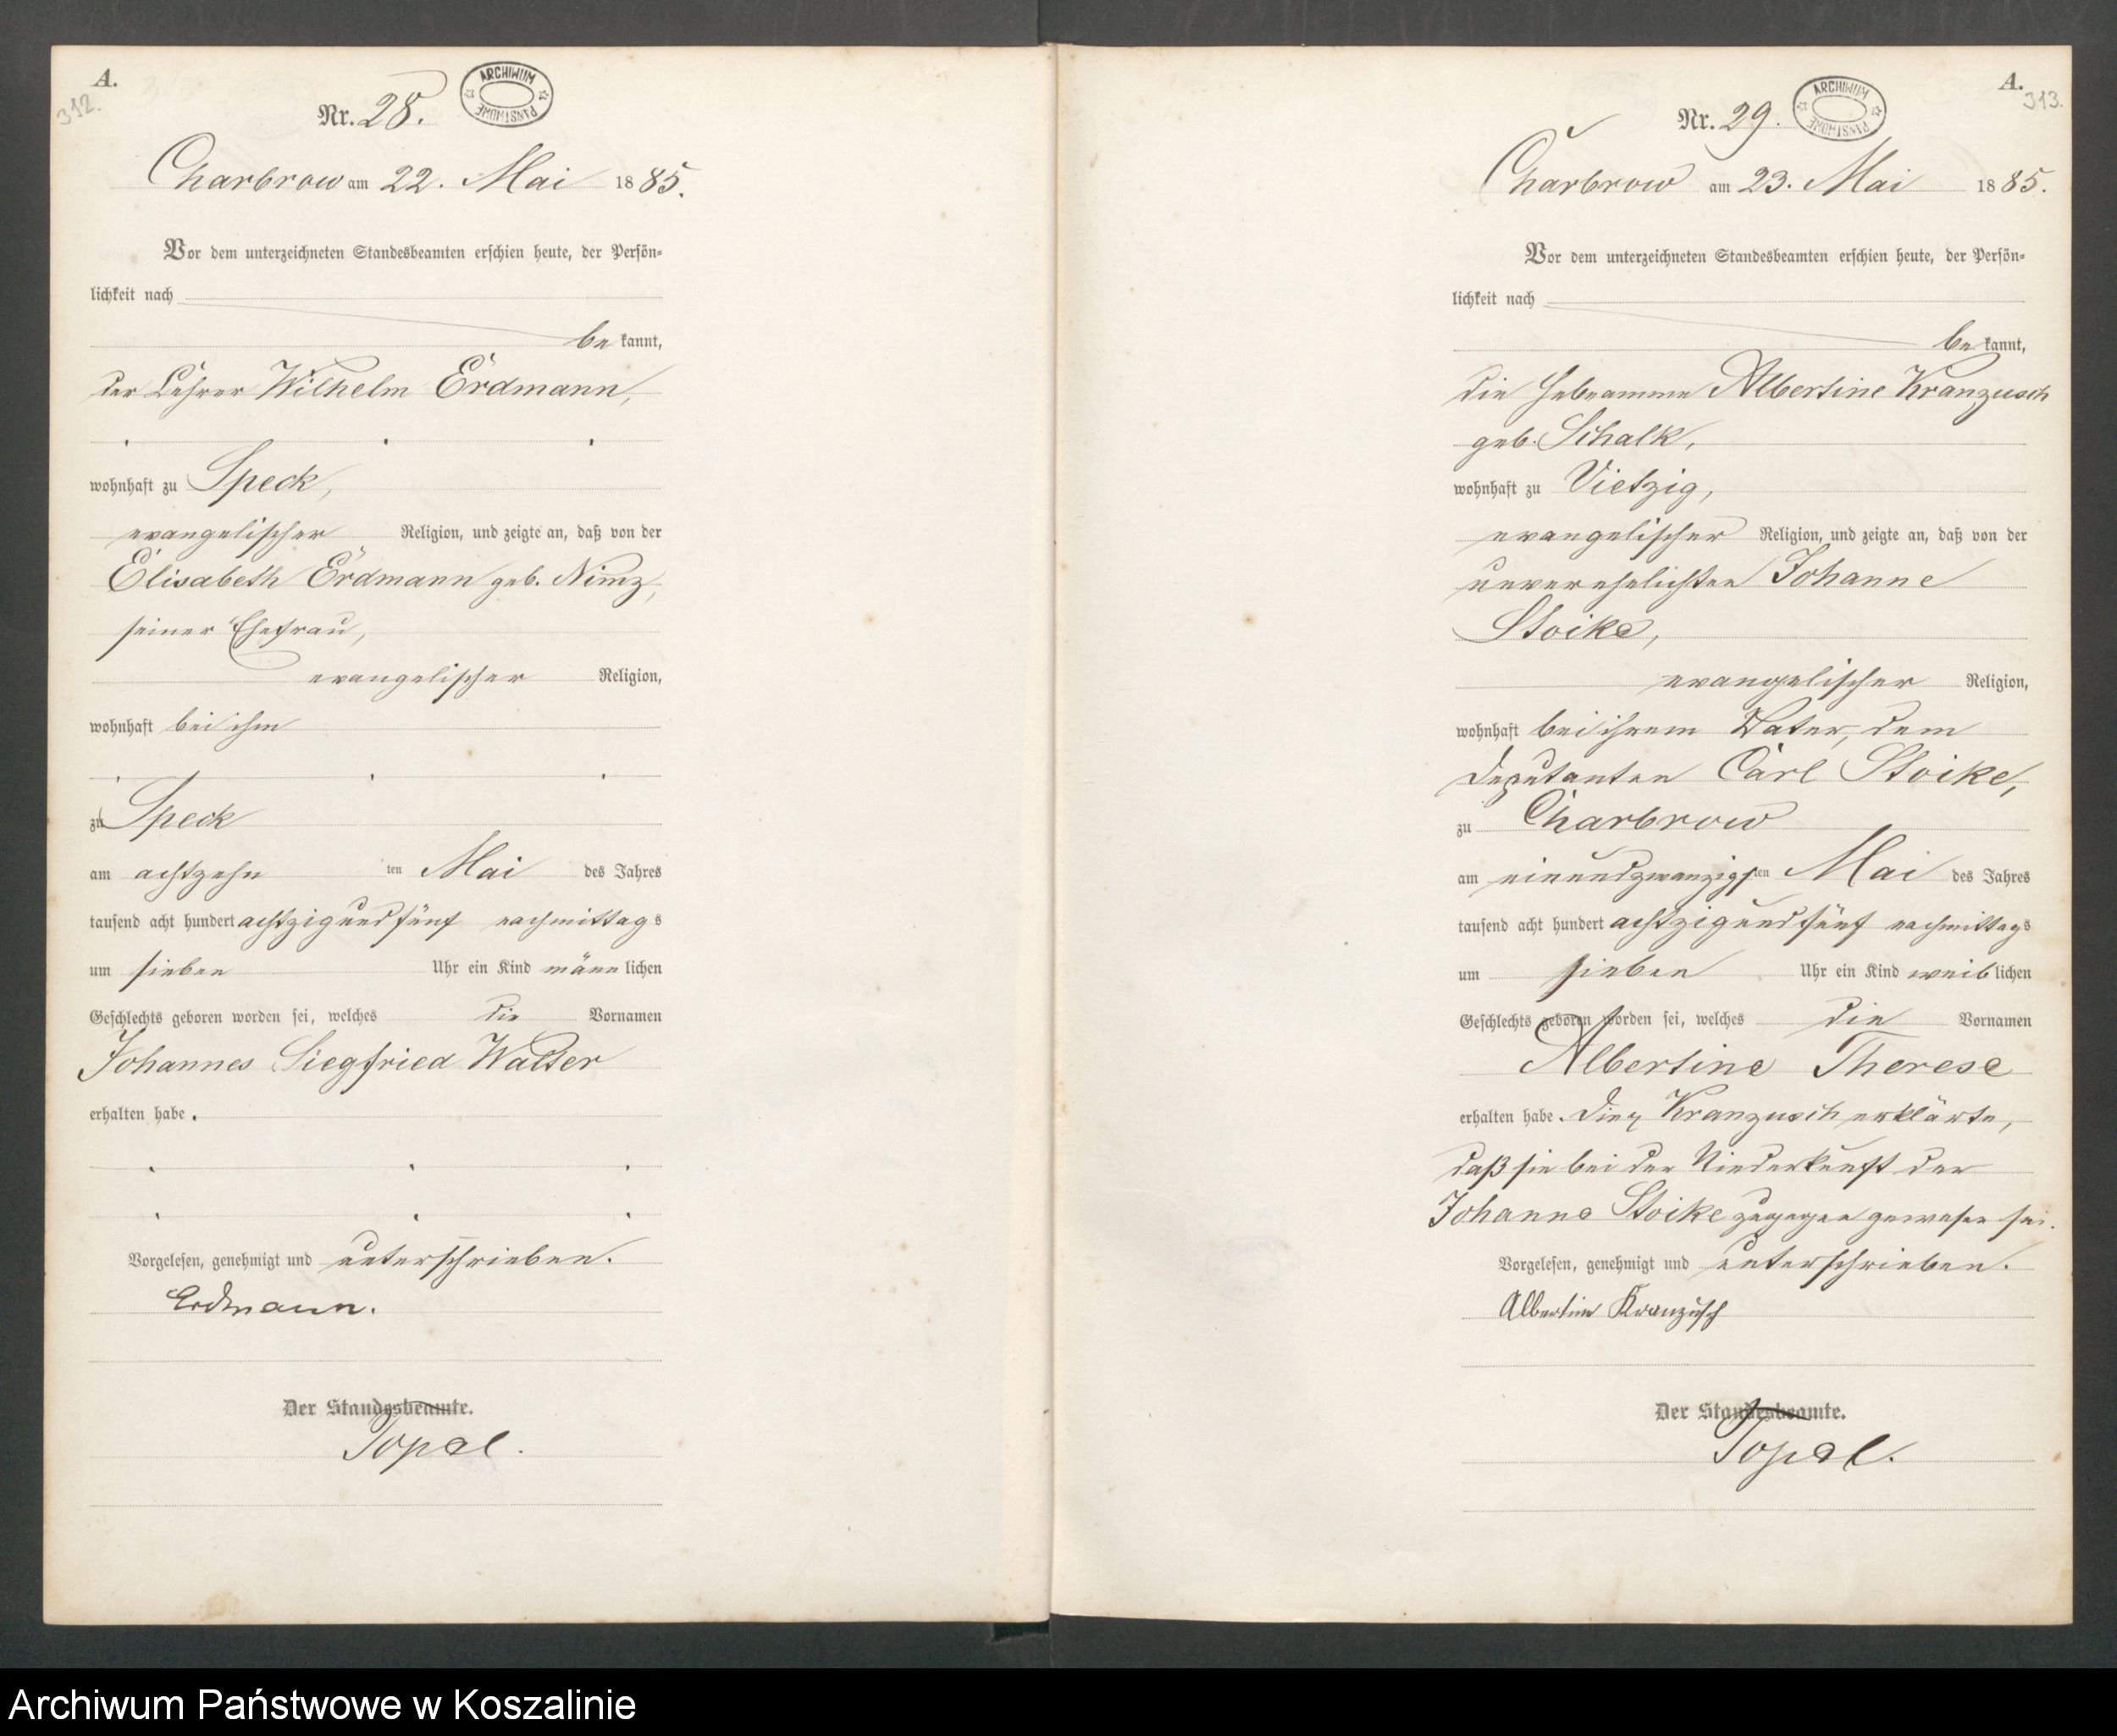 A.
312.
Nr. 28.
ARCHIWUM PAŃSTWOWE
Charbrow am 22. Mai 1885.
Vor dem unterzeichneten Standesbeamten erschien heute, der Persön-
lichkeit nach
be kannt,
der Lehrer Wilhelm Erdmann,
wohnhaft zu Speck,
evangelischer Religion, und zeigte an, daß von der
Elisabeth Erdmann geb. Nimz,
seiner Ehefrau,
evangelischer Religion,
wohnhaft bei ihm
zu Speck
am achtzehn ten Mai des Jahres
tausend acht hundert achtzig und fünf nachmittags
um sieben Uhr ein Kind männlichen
Geschlechts geboren worden sei, welches die Vornamen
Johannes Siegfried Walter
erhalten habe.
Vorgelesen, genehmigt und unterschrieben.
Erdmann.
Der Standesbeamte.
Topel.
A.
313.
Nr. 29.
ARCHIWUM PAŃSTWOWE
Charbrow am 23. Mai 1885.
Vor dem unterzeichneten Standesbeamten erschien heute, der Persön-
lichkeit nach
be kannt,
die Hebeamme Albertine Kranzusch
geb. Schalk,
wohnhaft zu Vietzig,
evangelischer Religion, und zeigte an, daß von der
unverehelichten Johanne
Stoike,
evangelischer Religion,
wohnhaft bei ihrem Vater, dem
Deputanten Carl Stoike,
zu Charbrow
am einundzwanzigsten Mai des Jahres
tausend acht hundert achtzig und fünf nachmittags
um sieben Uhr ein Kind weiblichen
Geschlechts geboren worden sei, welches die Vornamen
Albertine Therese
erhalten habe. Die Kranzusch erklärte,
daß sie bei der Niederkunft der
Johanne Stoike zugegen gewesen sei.
Vorgelesen, genehmigt und unterschrieben.
Albertine Kranzusch
Der Standesbeamte.
Topel.
Archiwum Państwowe w Koszalinie